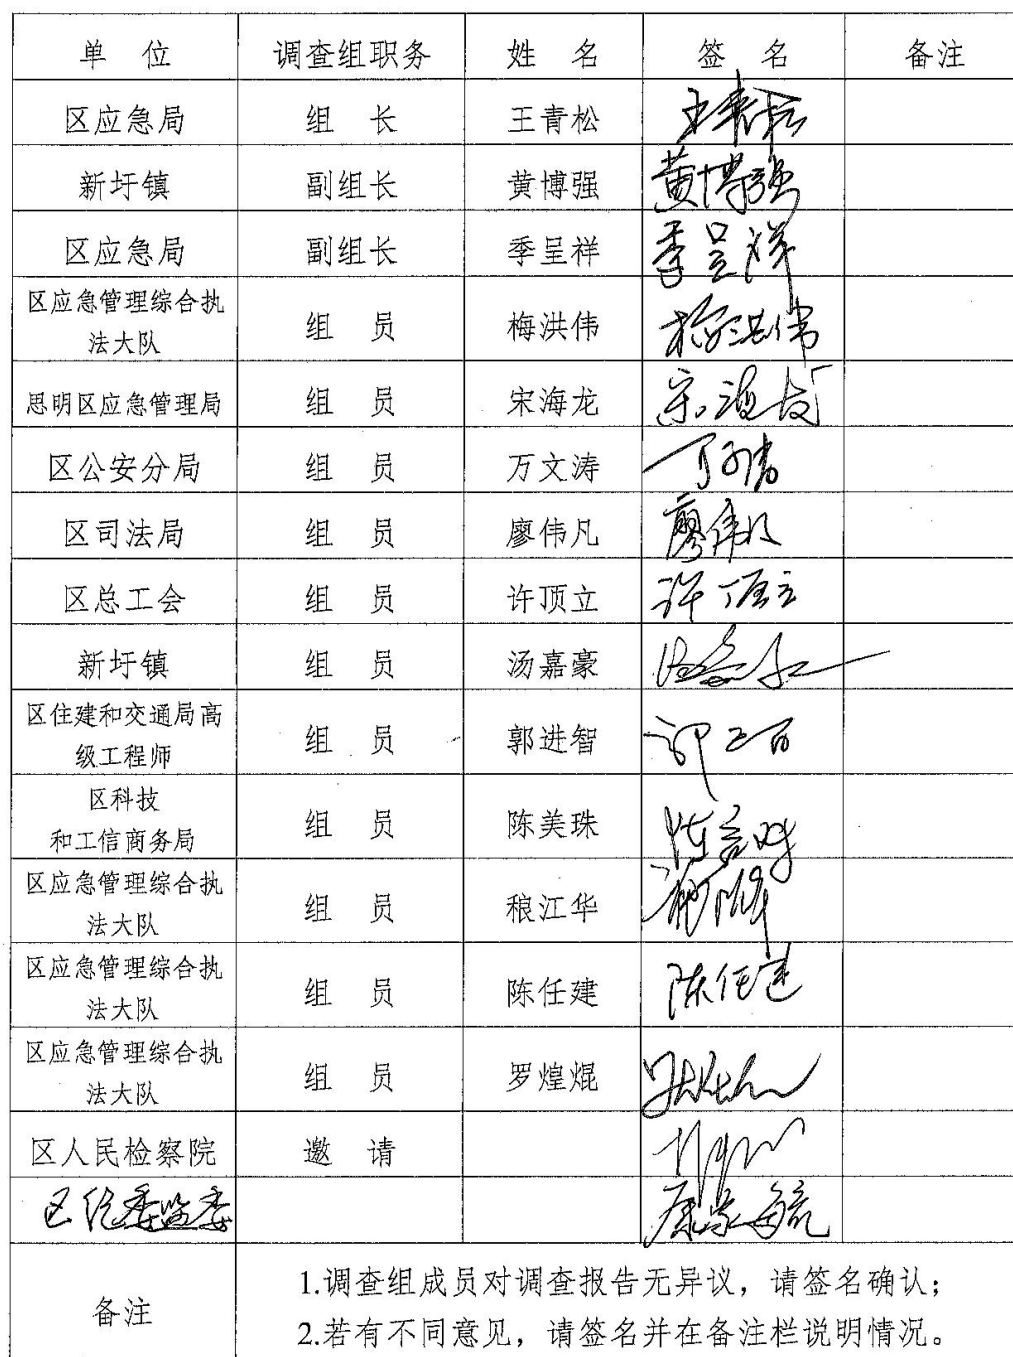 单 位 调查组职务 姓 名 签 名 备注
区应急局 组 长 王青松 王青松
新圩镇 副组长 黄博强 黄博强
区应急局 副组长 季呈祥 季呈祥
区应急管理综合执
法大队 组 员 梅洪伟 梅洪伟
思明区应急管理局 组 员 宋海龙 宋海龙
区公安分局 组 员 万文涛 万文涛
区司法局 组 员 廖伟凡 廖伟凡
区总工会 组 员 许顶立 许顶立
新圩镇 组 员 汤嘉豪
区住建和交通局高
级工程师 组 员 郭进智
区科技
和工信商务局 组 员 陈美珠 陈美珠
区应急管理综合执
法大队 组 员 稂江华
区应急管理综合执
法大队 组 员 陈任建 陈任建
区应急管理综合执
法大队 组 员 罗煌焜
区人民检察院 邀 请
区纪委监委
备注
1.调查组成员对调查报告无异议，请签名确认；
2.若有不同意见，请签名并在备注栏说明情况。